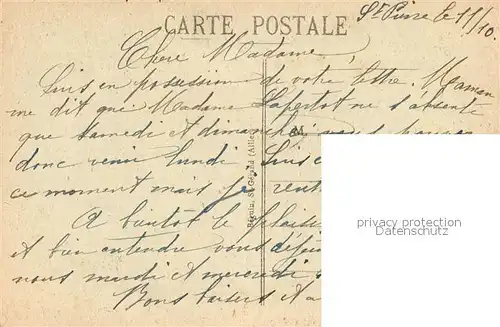 CARTE POSTALE
St Pierre le 11/10.
Chere Madame,
Suis en possession de votre lettre. Maman
me dit que Madame Lapertot ne s'absente
que Samedi et dimanche, vous pouvez
donc venir lundi. Suis
ce moment mais je rent
A bientôt le plaisi
et bien entendre vous
nous mardi et mercredi
Bons baisers
privacy protection
Datenschutz